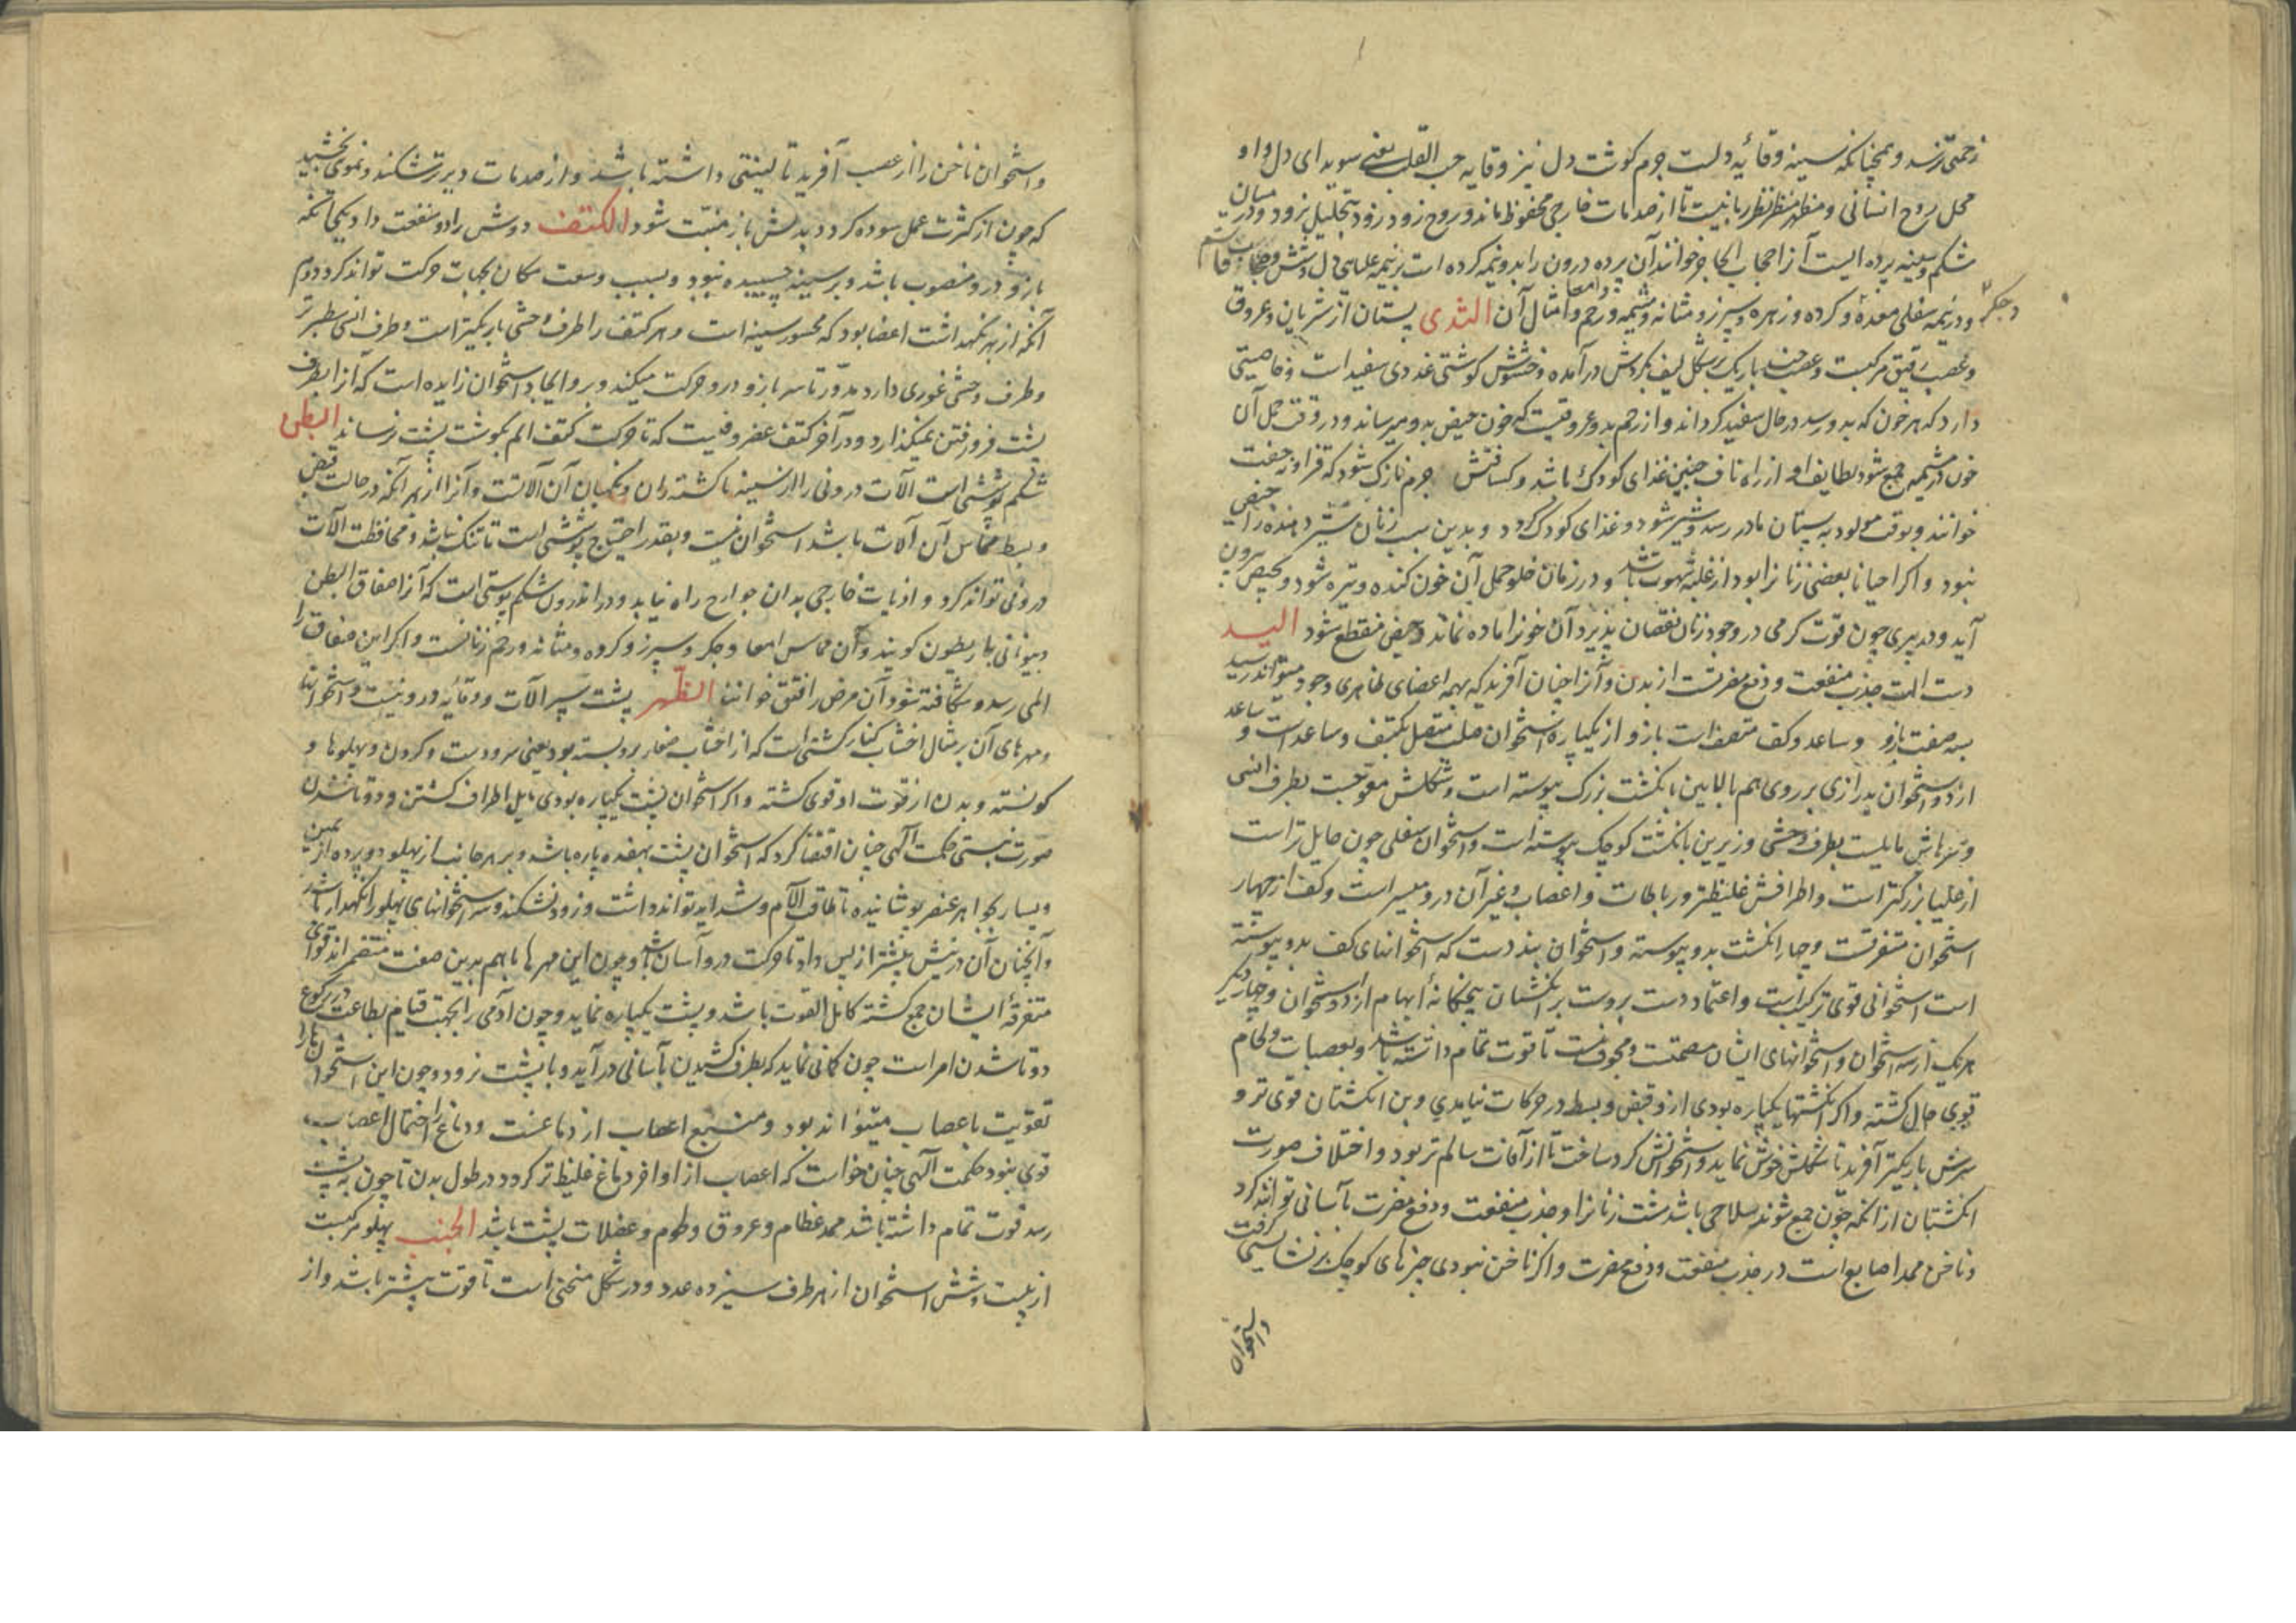 زحمتی نرسد و همچنانکه سینه وقایۀ دلست جرم کوشت دل نیز وقایه حب القلب یعنی سویدای دل و او
محل روح انسانی و مظهر نظر ربانیست تا از صدمات خارجی محفوظ ماند و روح زود زود بتحلیل نرود و در میان
شکم و سینه پرده ایست آنرا حجاب الحاجز خوانند آن پرده درون را بدو نیمه کرده است بر نیمه علیایی دل و شش و
و جکر و در نیمه سفلی معده و کرده و زهره و سپرز و مثانه و مشیمه و رحم و امثال آن الثدی پستان از شریان و عروق
و عصب رقیق مرکبست و عصب باریک بر شکل لیف بکردش درآمده و کوشتی غددی سفید است و خاصیتی
دارد که هر خون که بدو رسد در حال سفید کرداند و از رحم بدو عروقیست که خون حیض بدو میرساند و در وقت حمل آن
خون در مشیمه جمع شود لطایف او از راه ناف جنین غذای کودک باشد و کسافتش جرم نازک شود که آنرا
خوانند و بوقت مولود به پستان مادر رسد و شیر شود و غذای کودک کردد و بدین سبب زنان شیر دهنده را حیض
نبود و اکر احیانا بعضی زنانرا بود از غلبۀ شهوت باشد و در زمان خلو حمل آن خون کنده و تیره شود و بحیض بیرون
آید و در پیری چون قوت کرمی در وجود زنان نقصان پذیرد آن خونرا ماده نماند و حیض منقطع شود الید
دست الت جذب منفعت و دفع مضرتست از بدن و آنرا چنان آفرید که بهمه اعضای ظاهری وجود میتواند رسید
بسه صفت بازو و ساعد و کف متصف است بازو از یکپاره استخوان صلب متصل بکتف و ساعد است و ساعد
از دو استخوان بدرازی بر روی هم بالایین بانکشت بزرک پیوسته است و شکلش معوجست بطرف انسی
و سرهاش مایلست بطرف وحشی و زیرین بانکشت کوچک پیوسته است و استخوان سفلی چون حامل تر است
از علیا بزرکتر است و اطرافش غلیظتر و رباطات و اعصاب و غیر آن درو میسر است و کف از چهار
استخوان متفرقست و چهار انکشت بدو پیوسته و استخوان بند دست که استخوانهای کف بدو پیوسته
است استخوانی قوی ترکیب است و اعتماد دست بروست بر انکشتان پنجکانه ابهام از دو استخوان و چهار دیکر
هر یک از سه استخوان و استخوانهای ایشان مصمتست و مجوف نیست تا قوت تمام داشته باشد و بعصبات و لحام
قوی حال کشته و اکر انکشتها یکپاره بودی ازو قبض و بسط در حرکات نیامدی و بن انکشتان قوی تر و
سرش باریکتر آفرید تا شکلش خوش نماید و استخوانش کرد ساخت تا از آفات سالم تر بود و اختلاف صورت
انکشتان از آنکه چون جمع شوند سلاحی باشد مشت زنانرا و جذب منفعت و دفع مضرت بآسانی تواند کرد
و ناخن ممد اصابع است در جذب منفعت و دفع مضرت و اکر ناخن نبودی چیزهای کوچک بر نشایستی کرفت
واستخوان
و استخوان ناخن را از عصب آفرید تا لینتی داشته باشد و از صدمات دیرتر شکند و نموی بخشید
که چون از کثرت عمل سوده کردد بدلش باز منبت شود الکتف دوش را دو منفعت داد یکی آنکه
بازو درو منصوب باشد و بر سینه چسپیده نبود و بسبب وسعت مکان بجهات حرکت تواند کرد دوم
آنکه از بهر نکهداشت اعضا بود که محسور سینه است و هر کتف را طرف وحشی باریکتر است و طرف انسی سطبرتر
و طرف وحشی غوری دارد مدور تا سر بازو درو حرکت میکند و بر و استخوان زایده است که آنرا بطرف
پشت فرو رفتن نمیکذارد و در آخر کتف غضروفیست که تا حرکت کتف الم بکوشت پشت نرساند البطن
شکم پوششی است الات درونی را از سینه تا کشته ران و نکهبان آن آلاتست و آنرا از بهر آنکه در حالت قبض
و بسط مماس آن آلات باشد استخوان نیست و بقدر احتیاج پوششی است تا تنک نباشد و محافظت الات
درونی تواند کرد و اذیات خارجی بدان جوارح راه نیابد و در اندرون شکم پوستی است که آنرا صفاق البطن
و بیونانی باریطون کویند و آن مماس امعا و جکر و سپرز و کرده و مثانه و رحم زنانست و اکر این صفاق را
المی رسد و شکافته شود آن مرض را فتق خوانند الظهر پشت سپر الات و وقایۀ درونیست و استخوانها
و مهرهای آن بر مثال اخشاب کنار کشتی است که از اخشاب صغار برو بسته بود یعنی سر و دست و کردن و پهلوها و
کونسته و بدن از قوت او قوی کشته و اکر استخوان پشت یکپاره بودی مایل اطراف کشتن و دوتا شدن
صورت نبستی حکمت الهی چنان اقتضا کرد که استخوان پشت بهفده پاره باشد و بر هر جانب از پهلو دو پرده از یمین
و یسار بجواهر عنصر پوشانیده تا طاقت الآم و شداید تواند داشت و زود نشکند و سر استخوانهای پهلو را نکهدار باشد
و آنچنان آن در پیش بیشتر از پس داد تا حرکت درو آسان باشد و چون این مهرها با هم بدین صفت منضم اند قوای
متفرقۀ ایشان جمع کشته کامل القوت باشد و پشت یکپاره نماید و چون آدمی را بجهت قیام بطاعت در رکوع
دوتا شدن امر است چون کمانی نماید که بطرف کشیدن بآسانی درآید و با پشت نرود و چون این استخوانها را
تقویت باعصاب میتواند بود و منبع اعصاب از دماغست و دماغ را احتمال اعصاب
قوی نبود حکمت الهی چنان خواست که اعصاب از اواخر دماغ غلیظ تر کردد در طول بدن تا چون به پشت
رسد قوت تمام داشته باشد ممد عظام و عروق و لحوم و عضلات پشت باشد الجنب پهلو مرکبست
از بیست و شش استخوان از هر طرف سیزده عدد و در شکل منحنی است تا قوت بیشتر باشد و از